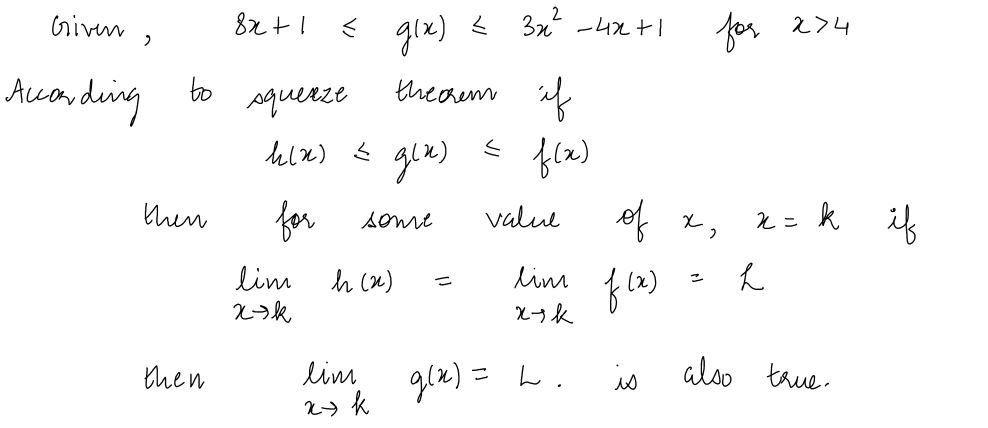 Given , 8x + 1 ≤ g(x) ≤ 3x² - 4x + 1 for x > 4
According to squeeze theorem if
h(x) ≤ g(x) ≤ f(x)
then for some value of x, x = k if
lim h(x) = lim f(x) = L
x→k x→k
then lim g(x) = L . is also true.
x→ k